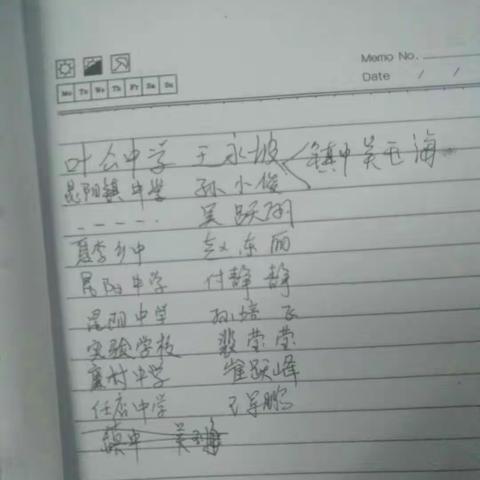 Memo No.
Date / /
Mo Tu We Th Fr Sa Su
叶公中学 王永坡 镇中吴 海
昆阳镇中学 孙小俊
吴跃
夏李乡中 赵东丽
昆阳中学 付静静
昆阳中学 孙培飞
实验学校 裴莹莹
中学 崔跃峰
任店中学 王军鹏
镇中 吴